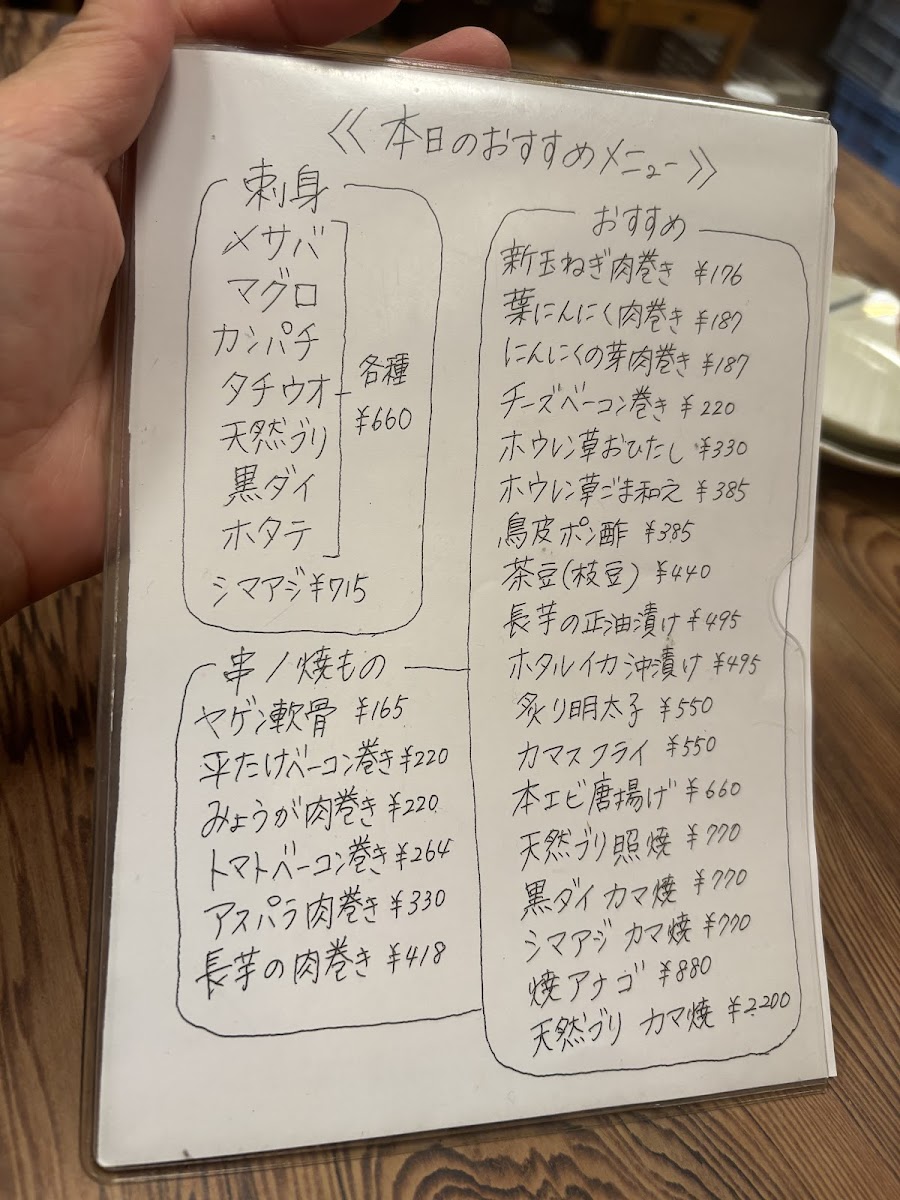 ≪本日のおすすめメニュー≫
刺身
〆サバ
マグロ
カンパチ
タチウオ
天然ブリ
黒ダイ
ホタテ
各種
¥660
シマアジ¥715
串ノ焼もの
ヤゲン軟骨 ¥165
平たけベーコン巻き¥220
みょうが肉巻き¥220
トマトベーコン巻き¥264
アスパラ肉巻き¥330
長芋の肉巻き¥418
おすすめ
新玉ねぎ肉巻き ¥176
葉にんにく肉巻き¥187
にんにくの芽肉巻き¥187
チーズベーコン巻き¥220
ホウレン草おひたし¥330
ホウレン草ごま和え¥385
鳥皮ポン酢 ¥385
茶豆(枝豆) ¥440
長芋の正油漬け¥495
ホタルイカ沖漬け¥495
炙り明太子 ¥550
カマスフライ ¥550
本エビ唐揚げ¥660
天然ブリ照焼 ¥770
黒ダイカマ焼 ¥770
シマアジカマ焼¥770
焼アナゴ ¥880
天然ブリ カマ焼 ¥2200